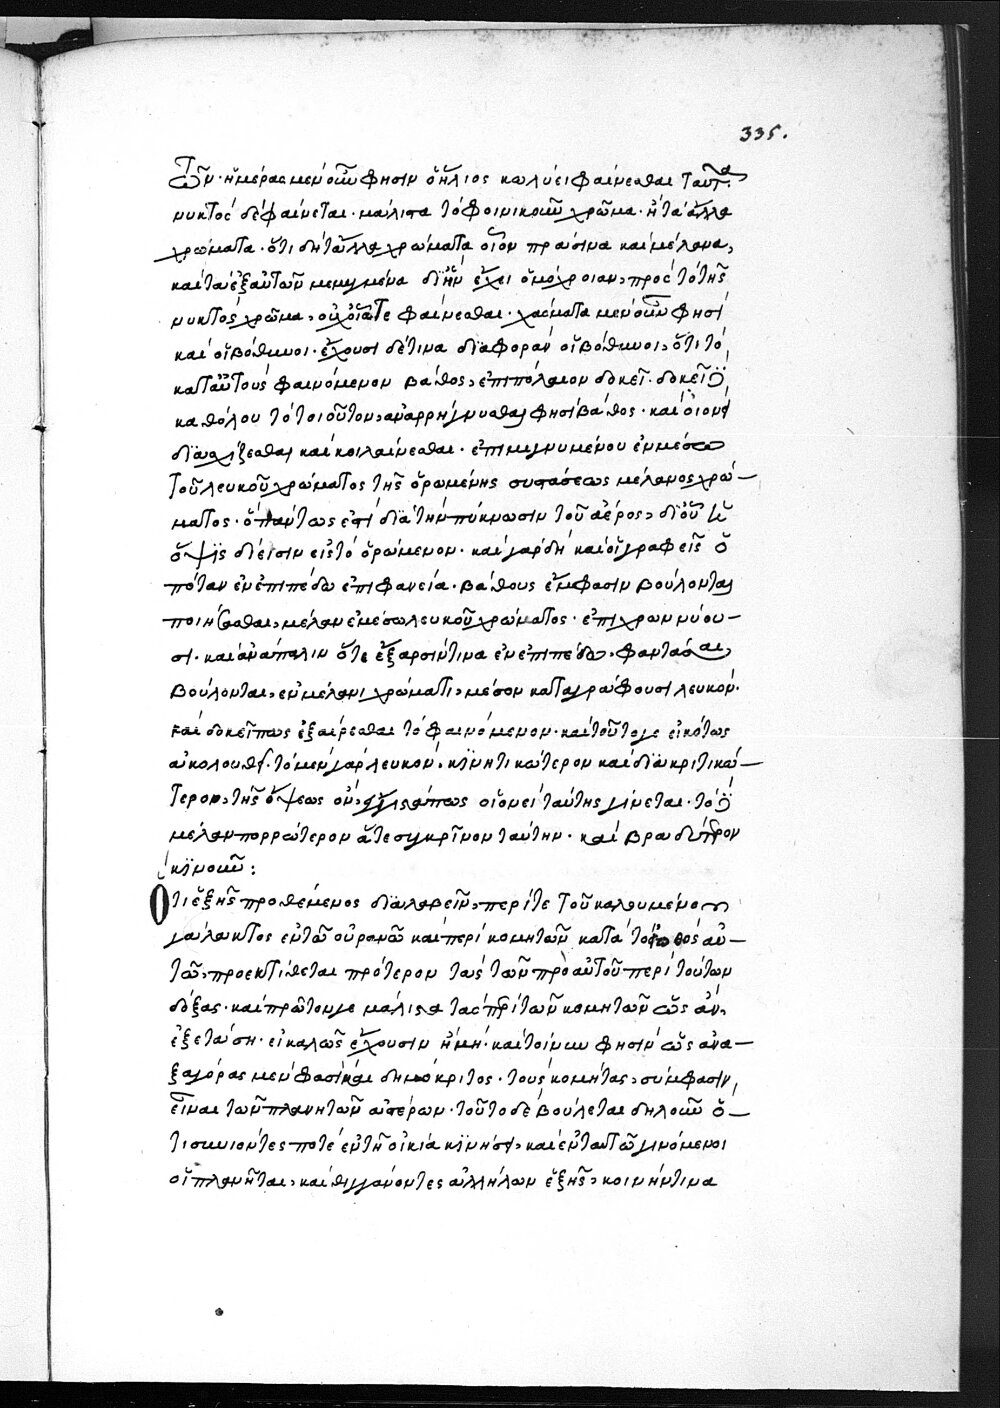 335.
των· ἡμέρας μὲν οὖν φησὶν ὁ ἥλιος κωλύει φαίνεσθαι ταῦτα,
νυκτὸς δὲ φαίνεται· μάλιστα τὸ φοινικοῦν χρῶμα· ἢ τὰ ἄλλα
χρώματα· ὅτι δὴ τἄλλα χρώματα οἷον πράσινα καὶ μέλανα,
καὶ τὰ ἐξ αὐτῶν μεμιγμένα δι' ἣν ἔχει ὁμόχροιαν, πρὸς τὸ τῆς
νυκτὸς χρῶμα, οὐχ οἷά τε φαίνεσθαι· χάσματα μὲν οὖν φησὶ
καὶ οἱ βόθυνοι· ἔχουσι δέ τινα διαφορὰν οἱ βόθυνοι, ὅτι τὸ
κατ' αὐτοὺς φαινόμενον βάθος, ἐπιπόλαιον δοκεῖ· δοκεῖ δὲ
καθόλου τὸ τοιοῦτον, ἀναρρήγνυσθαι φησὶ βάθος· καὶ οἱονεὶ
διαχίζεσθαι καὶ κοιλαίνεσθαι· ἐπιμιγνυμένου ἐν μέσω
τοῦ λευκοῦ χρώματος τῆς ὁρωμένης συστάσεως μέλανος χρώ-
ματος· ὃ πάντως ἐστὶ διὰ τὴν πύκνωσιν τοῦ ἀέρος, δι' οὗ ἡ
ὄψις δίεισιν εἰς τὸ ὁρώμενον· καὶ γὰρ δὴ καὶ οἱ γραφεῖς ὁ
πόταν ἐν ἐπιπέδω ἐπιφανεία· βάθους ἔμφασιν βούλονται
ποιήσασθαι, μέλαν ἐν μέσω λευκοῦ χρώματος· ἐπιχρωννύου-
σι· καὶ ἀνάπαλιν ὅτε ἔξαρσίν τινα ἐν ἐπιπέδω, φαντάσαι,
βούλονται, ἐν μέλανι χρώματι, μέσον καταγράφουσι λευκόν·
καὶ δοκεῖ πως ἐξαίρεσθαι τὸ φαινόμενον· καὶ τοῦτο γε εἰκότως
ἀκολουθεῖ· τὸ μὲν γὰρ λευκόν, κινητικώτερον καὶ διακριτικώ-
τερον, τῆς ὄψεως ὂν, ἔγγιστά πως οἱονεὶ ταύτης γίνεται· τὸ δὲ
μέλαν πορρώτερον ἅτε συγκρῖνον ταύτην· καὶ βραδύτερον
κινοῦν:
Ὅτι ἑξῆς προθέμενος διαλαβεῖν, περί τε τοῦ καλουμένου
γάλακτος ἐν τῶ οὐρανῶ καὶ περὶ κομητῶν κατὰ τὸ ἔθος αὐ-
τῶ, προεκτίθεται πρότερον τὰς τῶν πρὸ αὐτοῦ περὶ τούτων
δόξας· καὶ πρῶτον γε μάλιστα τὰς περὶ τῶν κομητῶν ὡς ἂν,
ἐξετάση· εἰ καλῶς ἔχουσιν ἢ μή· καὶ τοίνυν φησὶν ὡς ἀνα-
ξαγόρας μὲν φασὶ καὶ δημόκριτος· τοὺς κομήτας, σύμφασιν,
εἶναι τῶν πλανητῶν ἀστέρων· τοῦτο δὲ βούλεται δηλοῦν ὅ-
τι συνιόντες ποτὲ ἐν τῆ οἰκία κινήσει, καὶ ἐν ταυτῶ γινόμενοι
οἱ πλανῆται, καὶ θιγγάνοντες ἀλλήλων ἑξῆς, κοινήν τινα